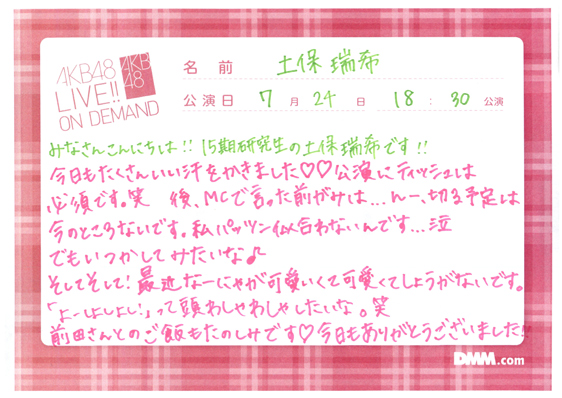 AKB48
LIVE!!
ON DEMAND
AKB
48
名前 土保瑞希
公演日 7月24日 18:30公演
みなさんこんにちは!! 15期研究生の土保瑞希です!!
今日もたくさんいい汗をかきました♡♡公演にティッシュは
必須です。笑 後、MCで言った前がみは…んー、切る予定は
今のところないです。私パッツン似合わないんです…泣
でもいつかしてみたいな♪
そしてそして!最近なーにゃが可愛いくて可愛くてしょうがないです。
「よーしよしよし」って頭わしゃわしゃしたいな。笑
前田さんとのご飯もたのしみです♡今日もありがとうございました!!
DMM.com